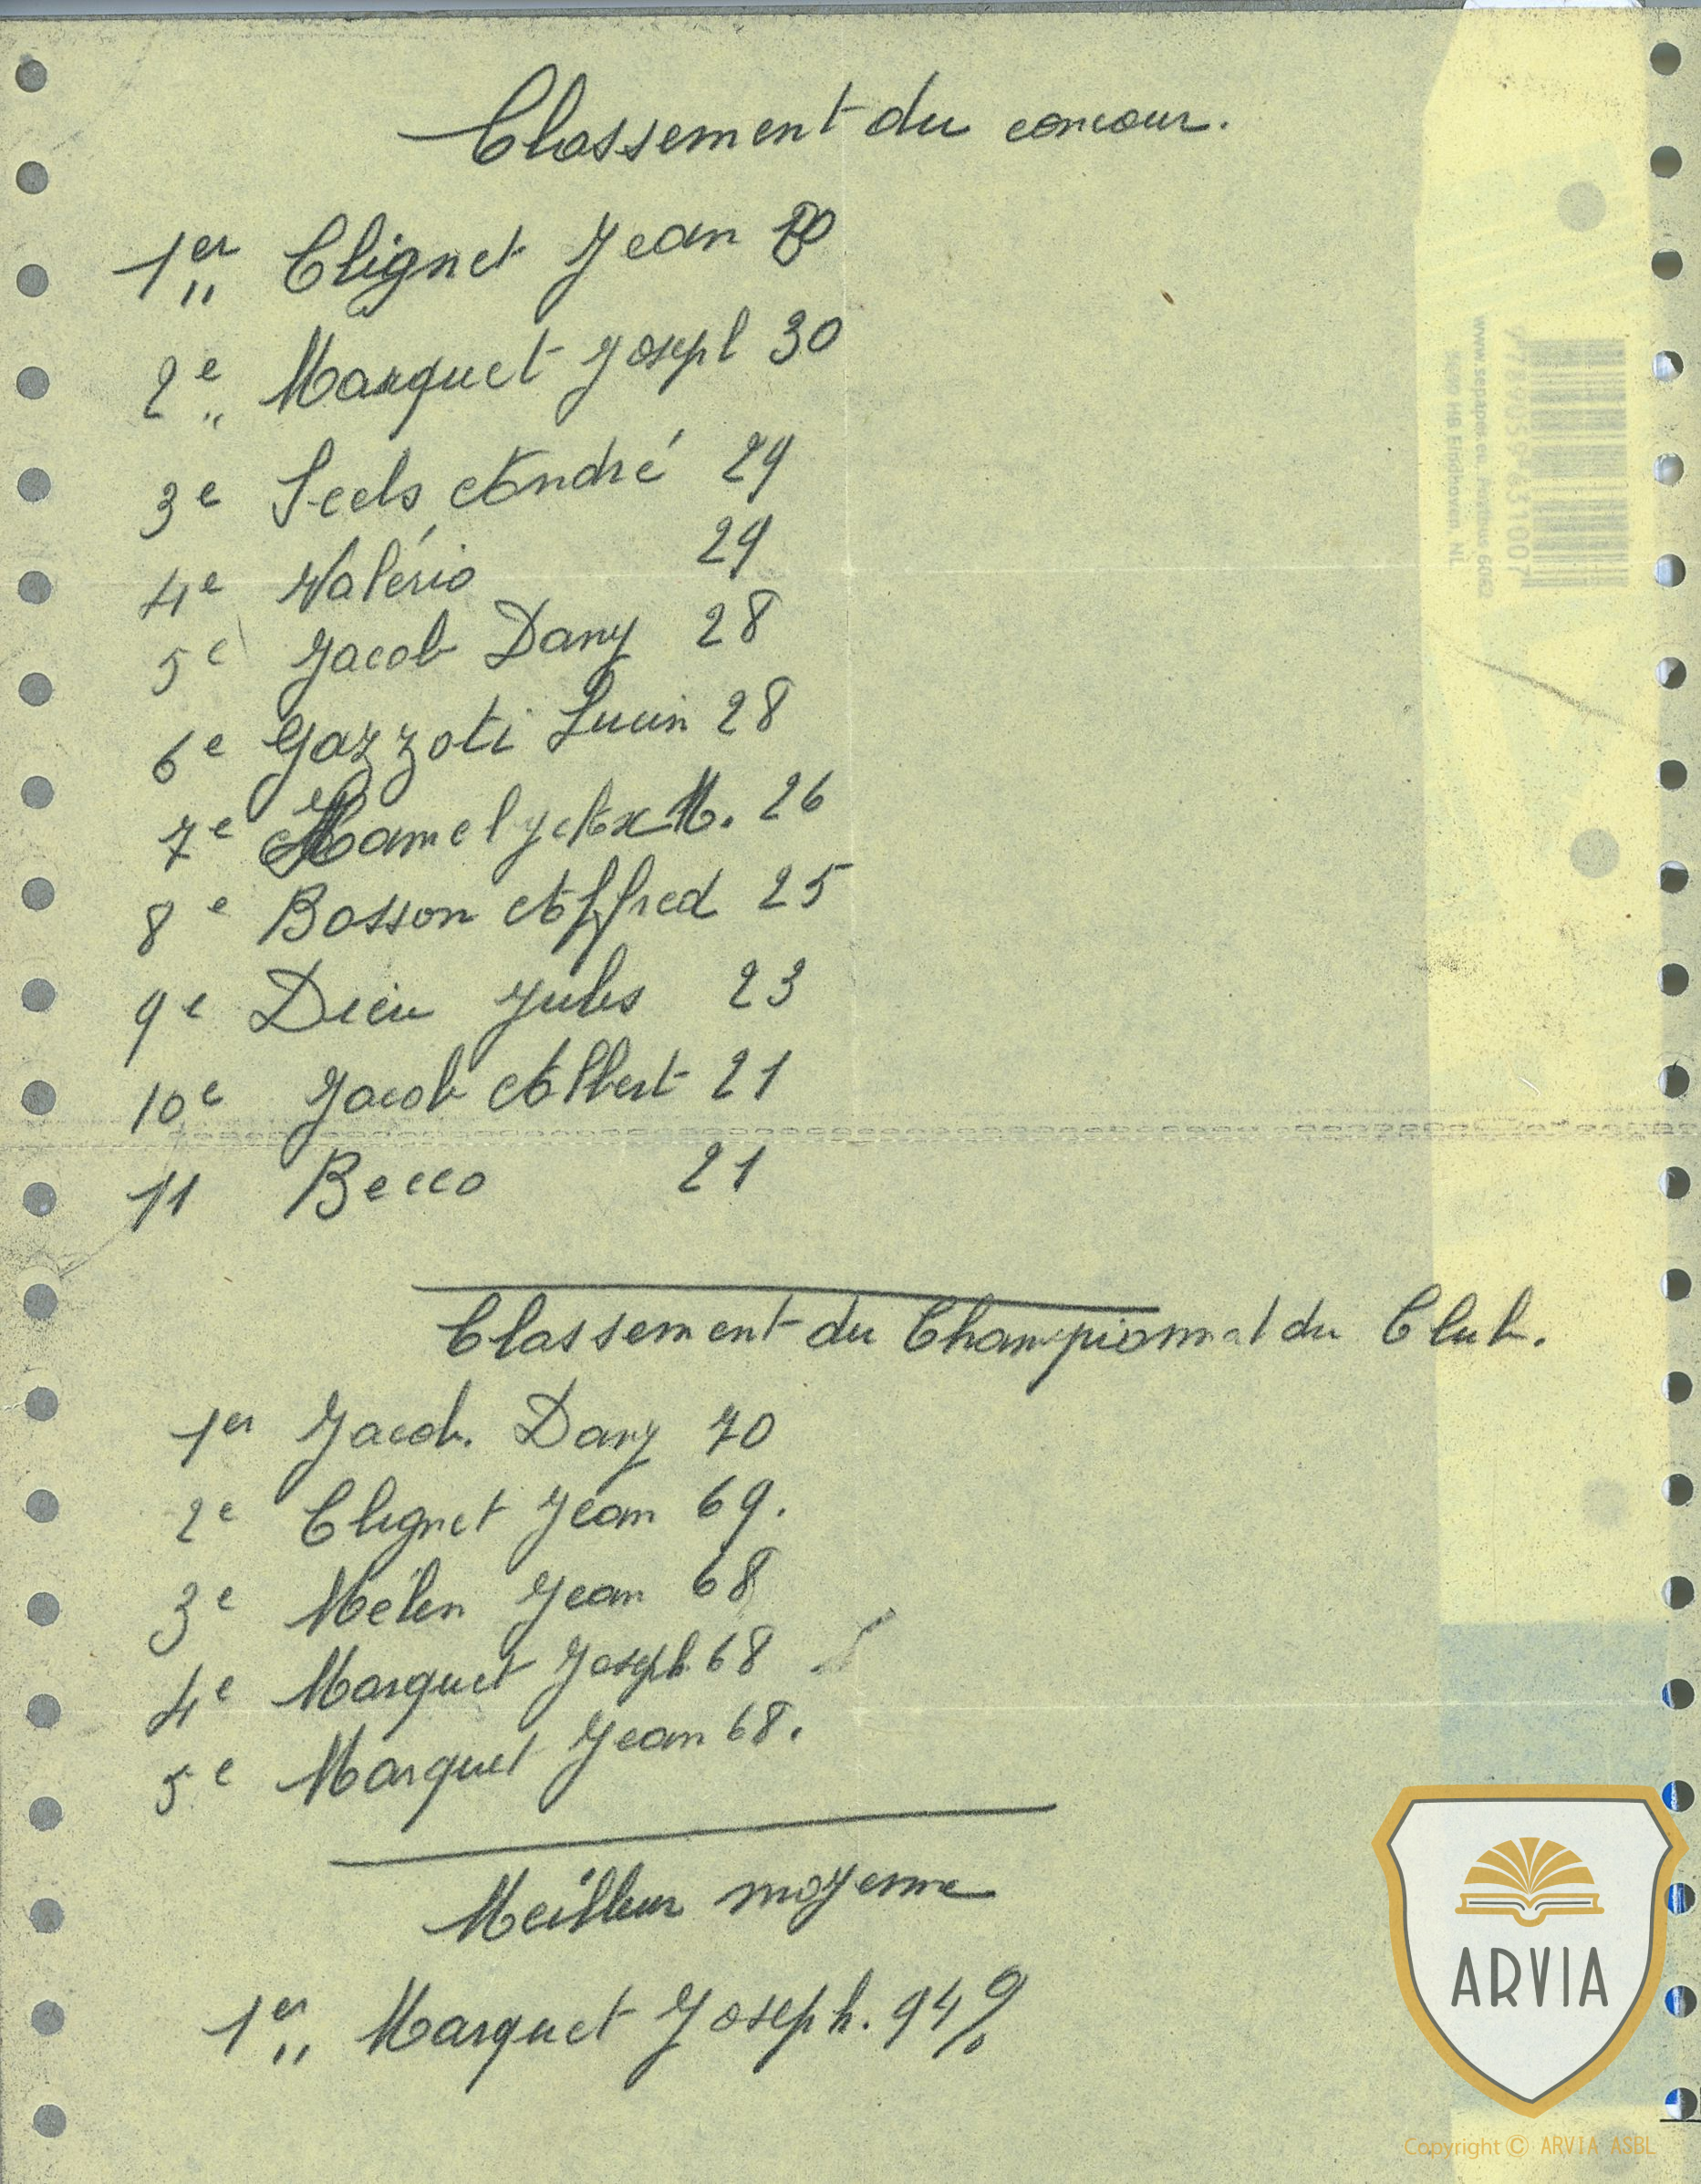 Classement du concour.
1er Clignet Jean
2e Marquet Joseph 30
3e Seels André 29
4e Valério 29
5e Jacob Dany 28
6e Gazzoti Lucien 28
7e M. 26
8e Bosson Alfred 25
9e Dieu Jules 23
10e Jacob Albert 21
11 Becco 21
Classement du Championnat du Club.
1er Jacob. Dany 70
2e Clignet Jean 69.
3e Melen Jean 68
4e Marquet Joseph 68
5e Marquet Jean 68.
Meilleur moyenne
1er Marquet Joseph. 94%
ARVIA
Copyright © ARVIA ASBL